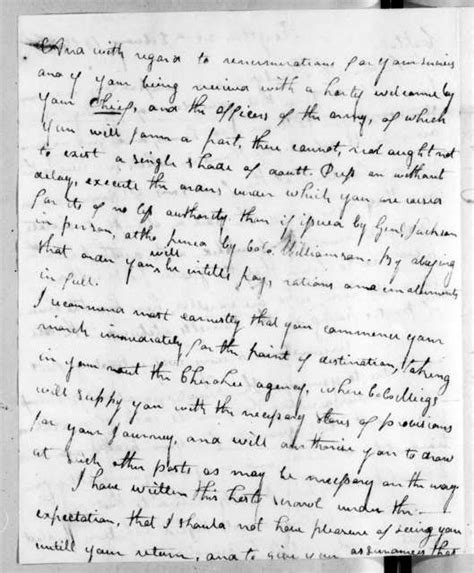 And with regard to remunerations for your services
and of your being received with a hearty welcome by
your Chief, and the officers of the army, of which
you will form a part, there cannot, nor ought not
to exist a single shade of doubt. Press on without
delay, execute the orders under which you are raised
for its of no less authority than if issued by Genl Jackson
in person, altho penned by Colo. Williamson. By obeying
that order you will be intitled pay, rations and emoluments
in full.
I recommend most earnestly that you commence your
march immediately for the point of destination, taking
in your rout the Cherokee agency, where Colo Meigs
will supply you with the necessary stores of provisions
for your Journey, and will authorise you to draw
at such other posts as may be necessary on the way
I have written this hasty scrawl under the
expectation, that I should not have pleasure of seeing you
untill your return, and to give you assurances that